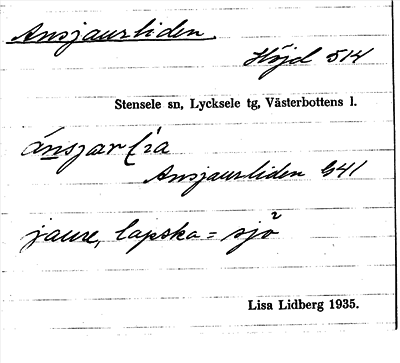 Ansjaurliden.
Höjd 514
Stensele sn, Lycksele tg, Västerbottens l.
Ansjaurliden G41
jaure, lapska = sjö
Lisa Lidberg 1935.